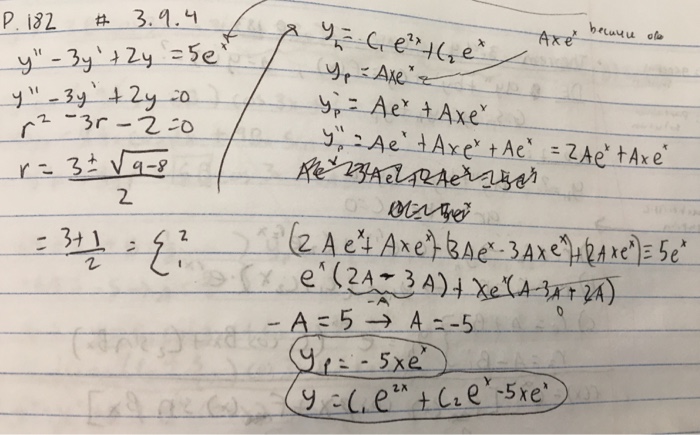 P. 182 # 3.9.4
y'' - 3y' + 2y = 5e^x
y'' - 3y' + 2y = 0
r^2 - 3r - 2 = 0
r = (3 ± √(9-8)) / 2
= (3 ± 1) / 2 = { 2, 1
y_h = C_1 e^{2x} + C_2 e^x
Axe^x because
y_p = Axe^x
y_p' = Ae^x + Axe^x
y_p'' = Ae^x + Axe^x + Ae^x = 2Ae^x + Axe^x
(2Ae^x + Axe^x) - (3Ae^x - 3Axe^x) + (2Axe^x) = 5e^x
e^x (2A - 3A) + xe^x (A - 3A + 2A)
-A 0
- A = 5 → A = -5
y_p = -5xe^x
y = C_1 e^{2x} + C_2 e^x - 5xe^x